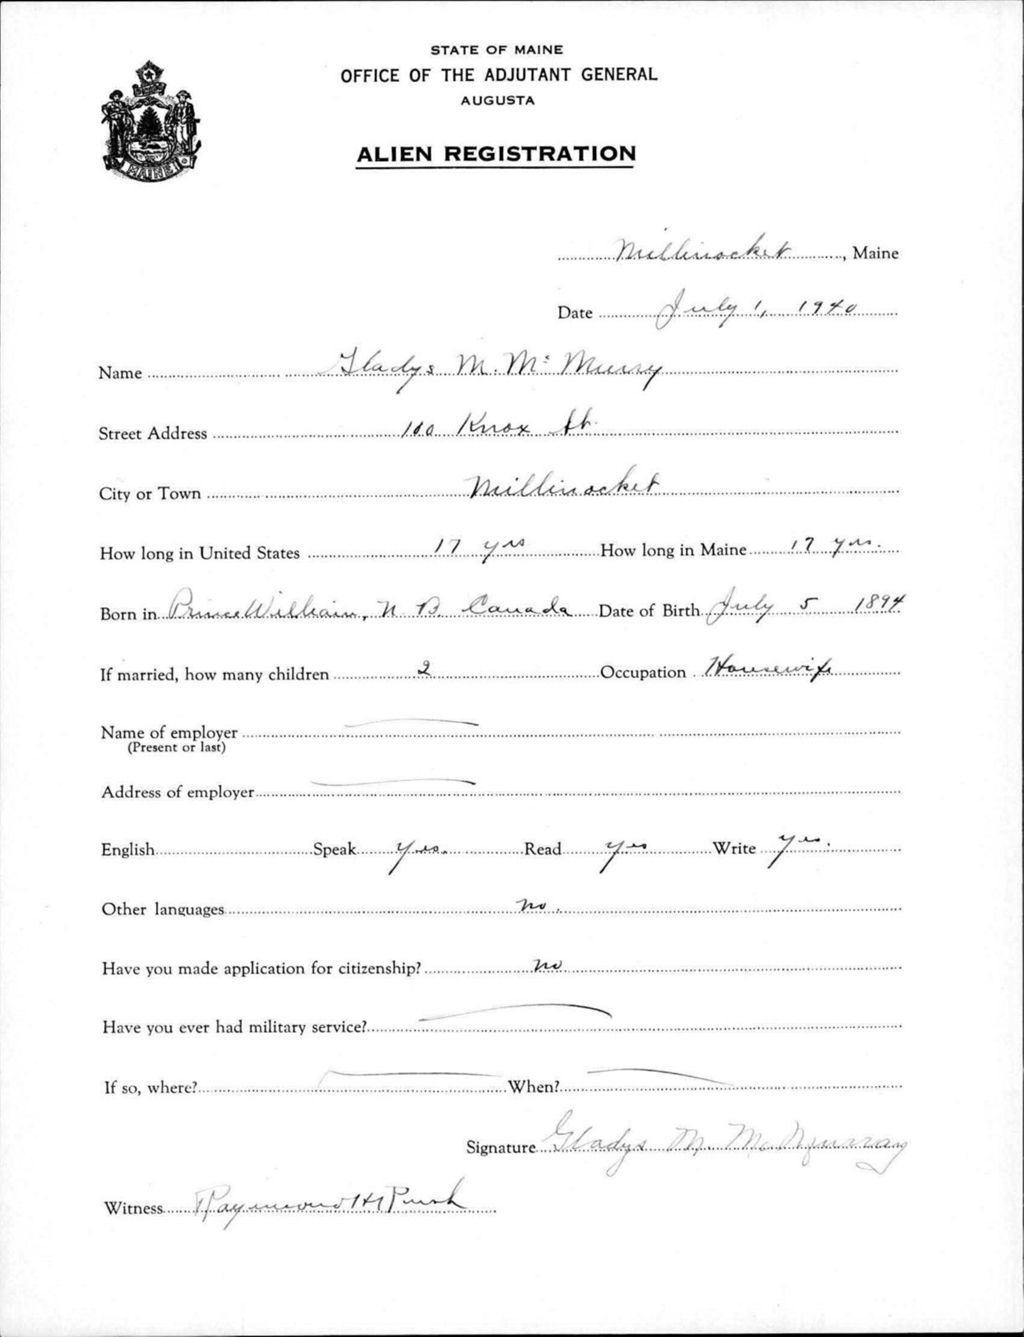 STATE OF MAINE
OFFICE OF THE ADJUTANT GENERAL
AUGUSTA
ALIEN REGISTRATION
MAINE
Millinocket, Maine
Date July 1, 1940
Name Gladys M. Mc Murry
Street Address 100 Knox St.
City or Town Millinocket
How long in United States 17 yrs How long in Maine 17 yrs.
Born in Prince William, N B. Canada Date of Birth July 5 1894
If married, how many children 2 Occupation Housewife
Name of employer
(Present or last)
Address of employer
English Speak Yes. Read yes Write Yes.
Other languages no.
Have you made application for citizenship? no
Have you ever had military service?
If so, where? When?
Signature Gladys M. Mc Murray
Witness Raymond H